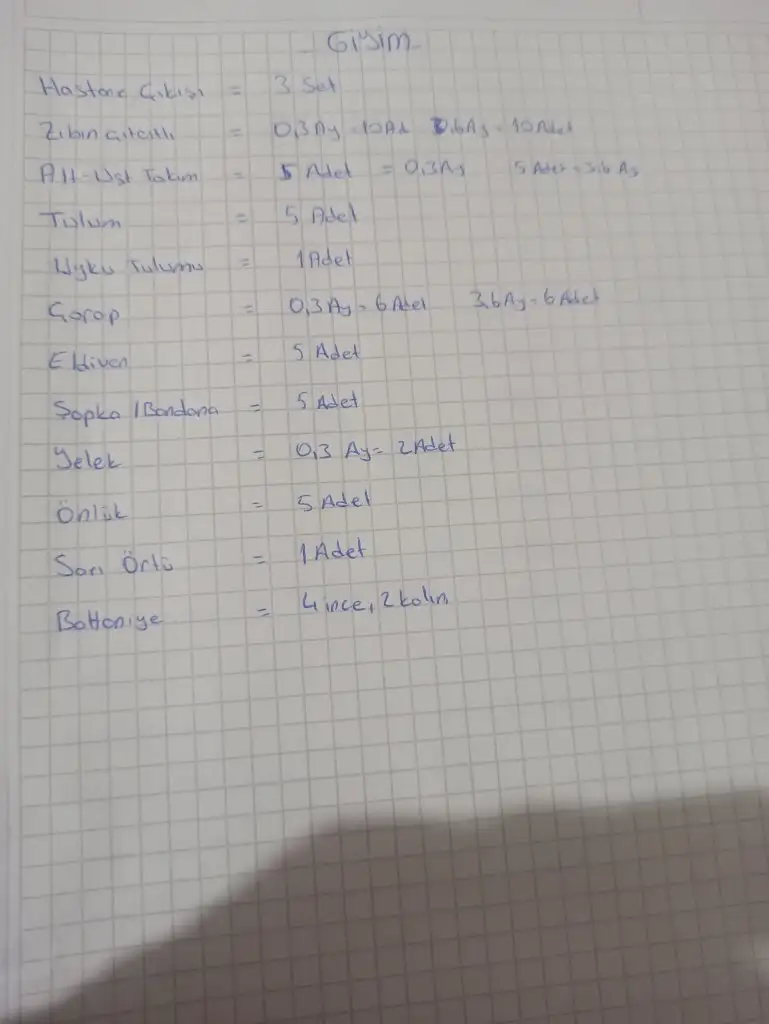 Giyim
Hastane Çıkışı = 3 Set
Zıbın Çıtçıtlı = 0,3 Ay - 10 Ad 3.6 Ay - 10 Adet
Alt-Üst Takım = 5 Adet = 0,3 Ay 5 Adet = 3.6 Ay
Tulum = 5 Adet
Uyku Tulumu = 1 Adet
Çorap = 0,3 Ay = 6 Adet 3.6 Ay = 6 Adet
Eldiven = 5 Adet
Şapka / Bandana = 5 Adet
Yelek = 0,3 Ay = 2 Adet
Önlük = 5 Adet
Sarı Örtü = 1 Adet
Battaniye = 4 ince, 2 kalın